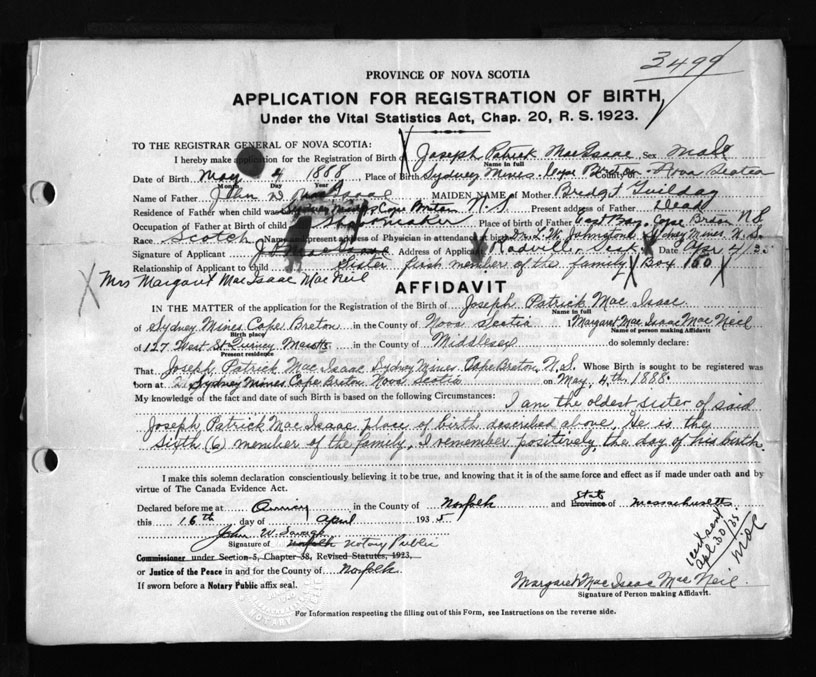 3499
PROVINCE OF NOVA SCOTIA
APPLICATION FOR REGISTRATION OF BIRTH
Under the Vital Statistics Act, Chap. 20, R. S. 1923.
TO THE REGISTRAR GENERAL OF NOVA SCOTIA:
I hereby make application for the Registration of Birth Joseph Patrick MacIsaac Sex Male
Name in full
Date of Birth May 4 1888 Place of Birth Sydney Mines Cape Breton Nova Scotia
Month Day Year County
Name of Father John D MacIsaac MAIDEN NAME of Mother Bridget
Residence of Father when child was Sydney Mines Cape Breton N. S. Present address of Father Dead
Occupation of Father at Birth of child Shoemaker Place of birth of Father East Bay, Cape Breton N S
Race Scotch Name and present address of Physician in attendance at birth Dr. L. W. Johnstone Sydney Mines N. S.
Signature of Applicant J. P. MacIsaac Address of Applicant Radville, Sask. Date Apr 4/35
Relationship of Applicant to Child Sister first member of the family Box 160
X Mrs Margaret MacIsaac MacNeil
AFFIDAVIT
IN THE MATTER of the application for the Registration of the Birth of Joseph Patrick MacIsaac
Name in full
of Sydney Mines Cape Breton in the County of Nova Scotia Margaret MacIsaac MacNeil
Birth place Name of person making Affidavit
of 127 West St Quincy Mass in the County of Middlesex do solemnly declare:
Present residence
That Joseph Patrick MacIsaac Sydney Mines Cape Breton, N. S. Whose Birth is sought to be registered
born at Sydney Mines Cape Breton Nova Scotia on May 4th 1888
My knowledge of the fact and date of such Birth is based on the following Circumstances: I am the oldest sister of said
Joseph Patrick MacIsaac place of birth described above. He is the
sixth (6) member of the family, I remember positively the day of his birth.
I make this solemn declaration conscientiously believing it to be true, and knowing that it is of the same force and effect as if made under oath and by
virtue of The Canada Evidence Act.
Declared before me at Quincy in the County of Norfolk and State Province of Massachusetts
this 16th day of April 1935
John W.
Signature of Norfolk Notary Public
Commissioner under Section 5, Chapter 38, Revised Statutes, 1923,
or Justice of the Peace in and for the County of Norfolk
If sworn before a Notary Public affix seal.
cert sent
Apl 30/35
Mac
Margaret MacIsaac MacNeil
Signature of Person making Affidavit.
For Information respecting the filling out of this Form, see Instructions on the reverse side.